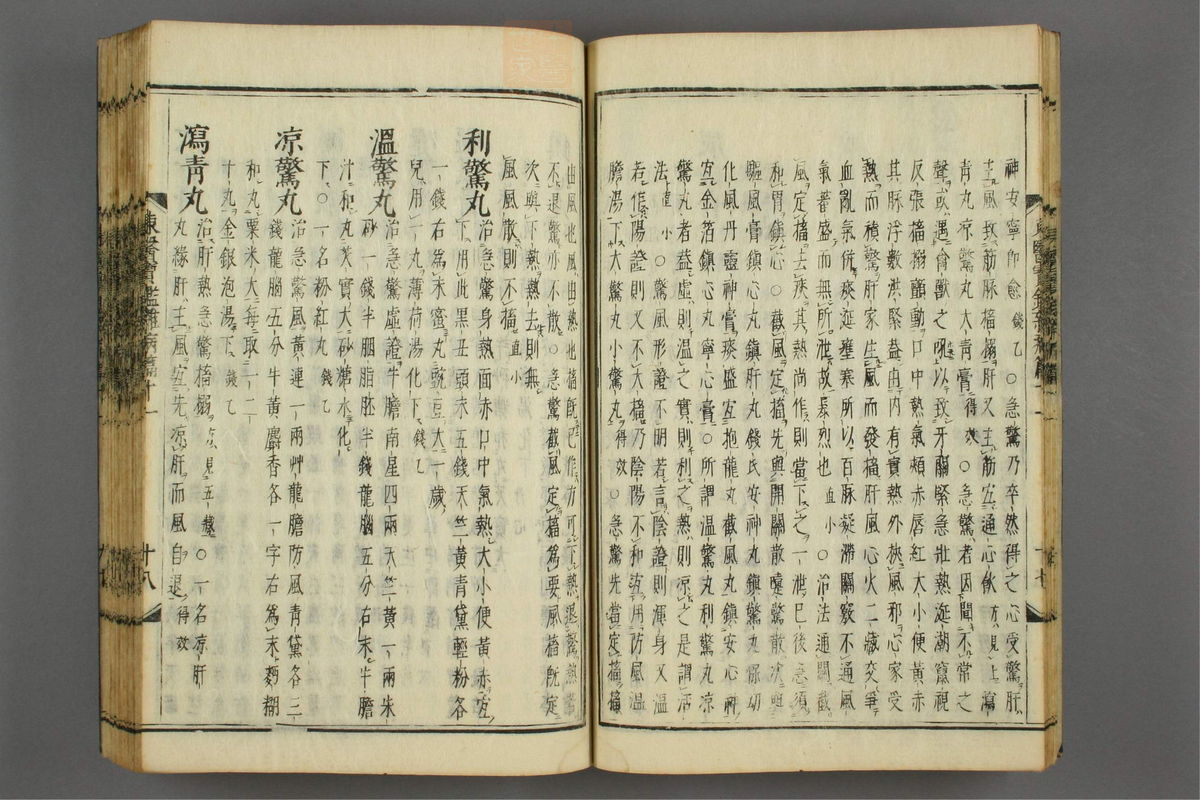 神安寧卽愈錢乙○急驚乃卒然得之心受驚肝
主風致筋脉搐搦肝又主筋宜通心飮方見上瀉
靑丸凉驚丸大靑膏得效○急驚者因聞不常之
聲或遇禽獸之吼以致牙關緊急壯熱涎潮竄視
反張搐搦顫動口中熱氣頰赤唇紅大小便黃赤
其脉浮數洪緊盖由內有實熱外挾風邪心家受
熱而積驚肝家生風而發搐肝風心火二藏交爭
血亂氣併痰涎壅塞所以百脉凝滯關竅不通風
氣蕃盛而無所泄故暴烈也直小○治法通關截
風定搐去痰其熱尙作則當下之一泄已後急須
和胃鎭心○截風定搐先與開關散嚏驚散次與
驅風膏鎭心丸鎭肝丸錢氏安神丸鎭驚丸保幼
化風丹靈神膏痰盛宜抱龍丸截風丸鎭安心神
宜金箔鎭心丸寧心膏○所謂溫驚丸利驚丸凉
驚丸者盖虛則溫之實則利之熱則凉之是謂活
法直小○驚風形證不明若言陰證則渾身又溫
若作陽證則又不大搐乃陰陽不和宜用防風溫
膽湯下大驚丸小驚丸得效○急驚先當定搐搐
由風也風由熱也搐旣已作方可下熱退驚熱若
不退驚亦不散○急驚截風定搐爲要風搐旣定
次與下熱熱去則無
風風散則不搐直小
利驚丸
治急驚身熱面赤口中氣熱大小便黃赤宜
下用此黑丑頭末五錢天竺黃靑黛輕粉各
一錢右爲末蜜丸豌豆大一歲
兒用一丸薄荷湯化下錢乙
溫驚丸
治急驚虛證牛膽南星四兩天竺黃一兩朱
砂一錢半胭脂胚半錢龍腦五分右末牛膽
汁和丸芡實大砂糖水化
下○一名粉紅丸錢乙
凉驚丸
治急驚風黃連一兩艸龍膽防風靑黛各三
錢龍腦五分牛黃麝香各一字右爲末麪糊
和丸粟米大每取一二
十丸金銀泡湯下錢乙
瀉靑丸
治肝熱急驚搐搦方見五藏○一名凉肝
丸緣肝主風宜先凉肝而風自退得效
東醫寶鑑雜病篇十一
十八